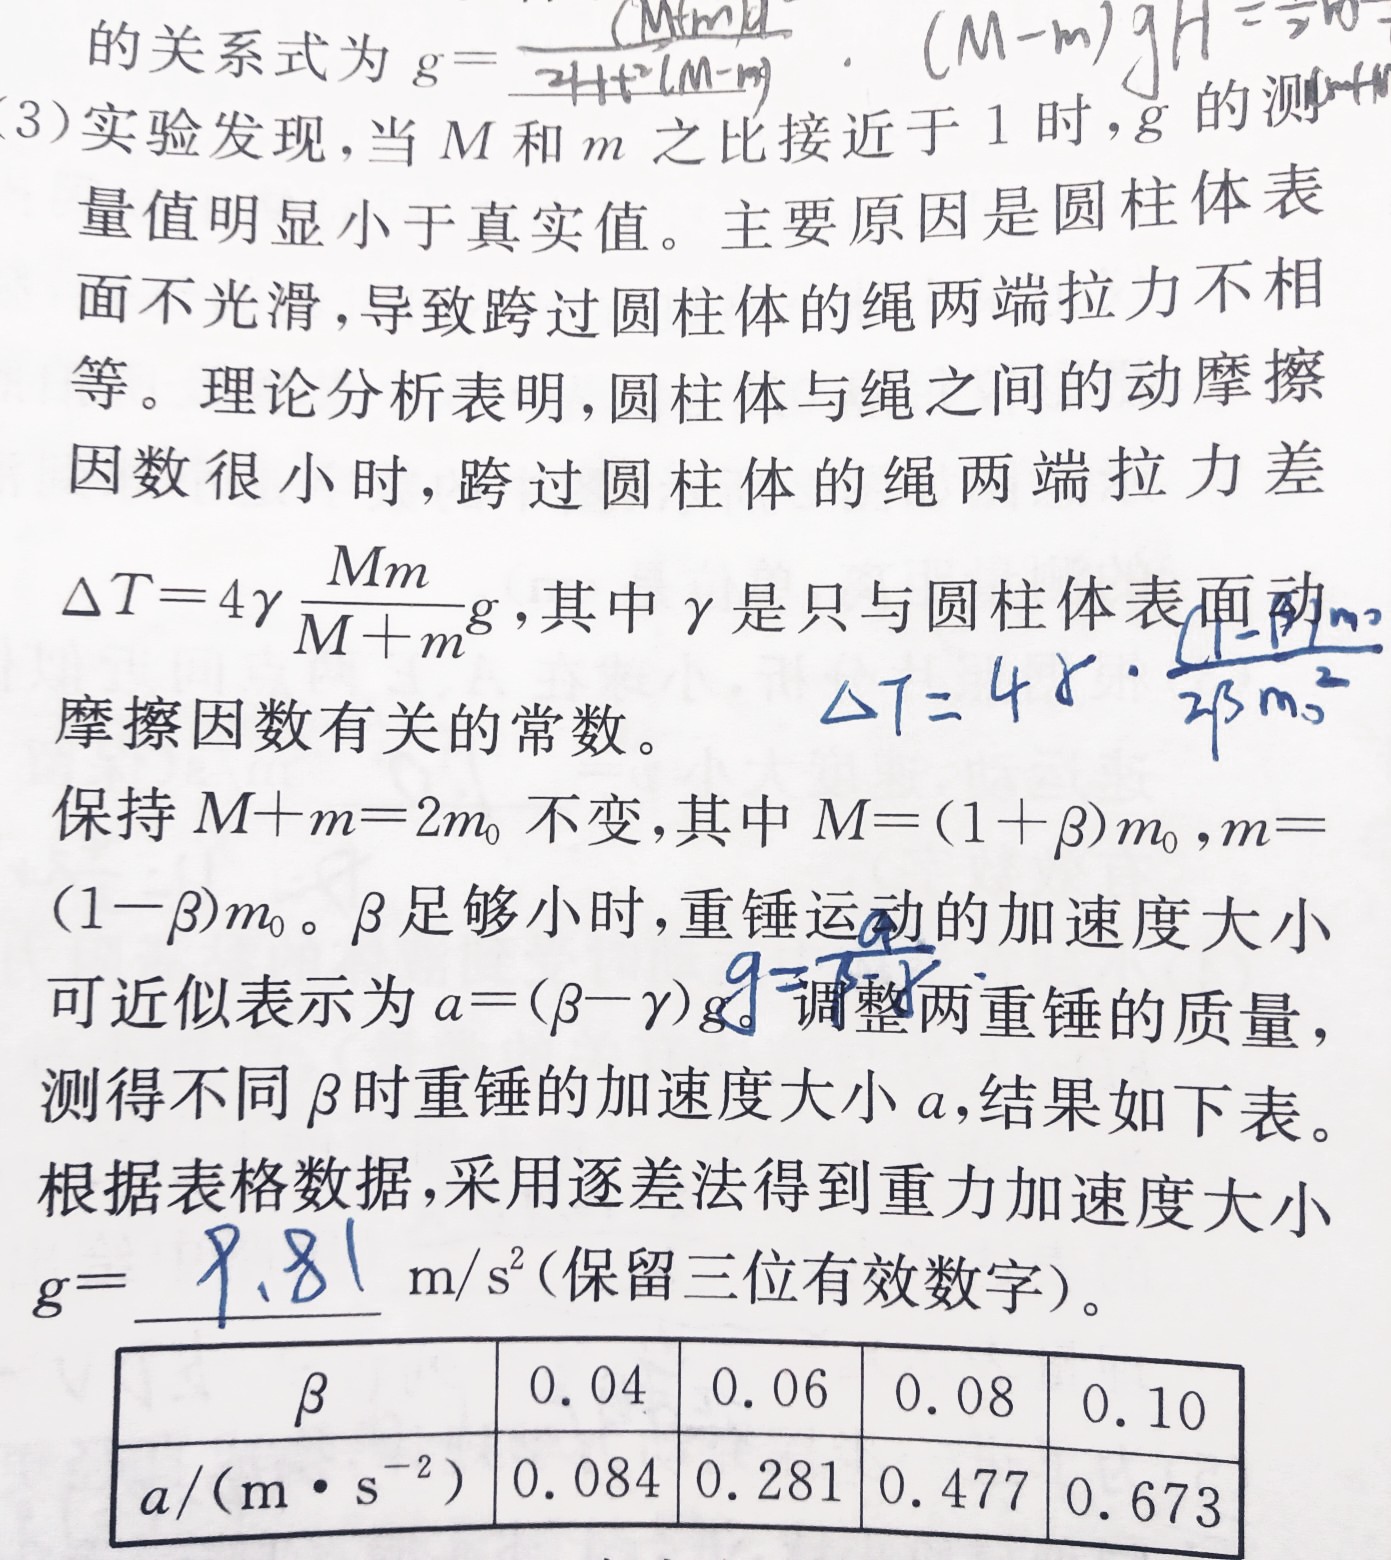 的关系式为 g= (M+m)d² / 2Ht²(M-m) . (M-m)gH=½
(3)实验发现,当 M 和 m 之比接近于 1 时,g 的测
量值明显小于真实值。主要原因是圆柱体表
面不光滑,导致跨过圆柱体的绳两端拉力不相
等。理论分析表明,圆柱体与绳之间的动摩擦
因数很小时,跨过圆柱体的绳两端拉力差
△T=4γ Mm/(M+m) g,其中 γ 是只与圆柱体表面动
△T=4γ· (1-β)m₀/2βm₀²
摩擦因数有关的常数。
保持 M+m=2m₀ 不变,其中 M=(1+β)m₀,m=
(1-β)m₀。β足够小时,重锤运动的加速度大小
g= a/(β-γ).
可近似表示为 a=(β-γ)g。调整两重锤的质量,
测得不同β时重锤的加速度大小 a,结果如下表。
根据表格数据,采用逐差法得到重力加速度大小
g= 9.81 m/s²(保留三位有效数字)。
β 0.04 0.06 0.08 0.10
a/(m·s⁻²) 0.084 0.281 0.477 0.673